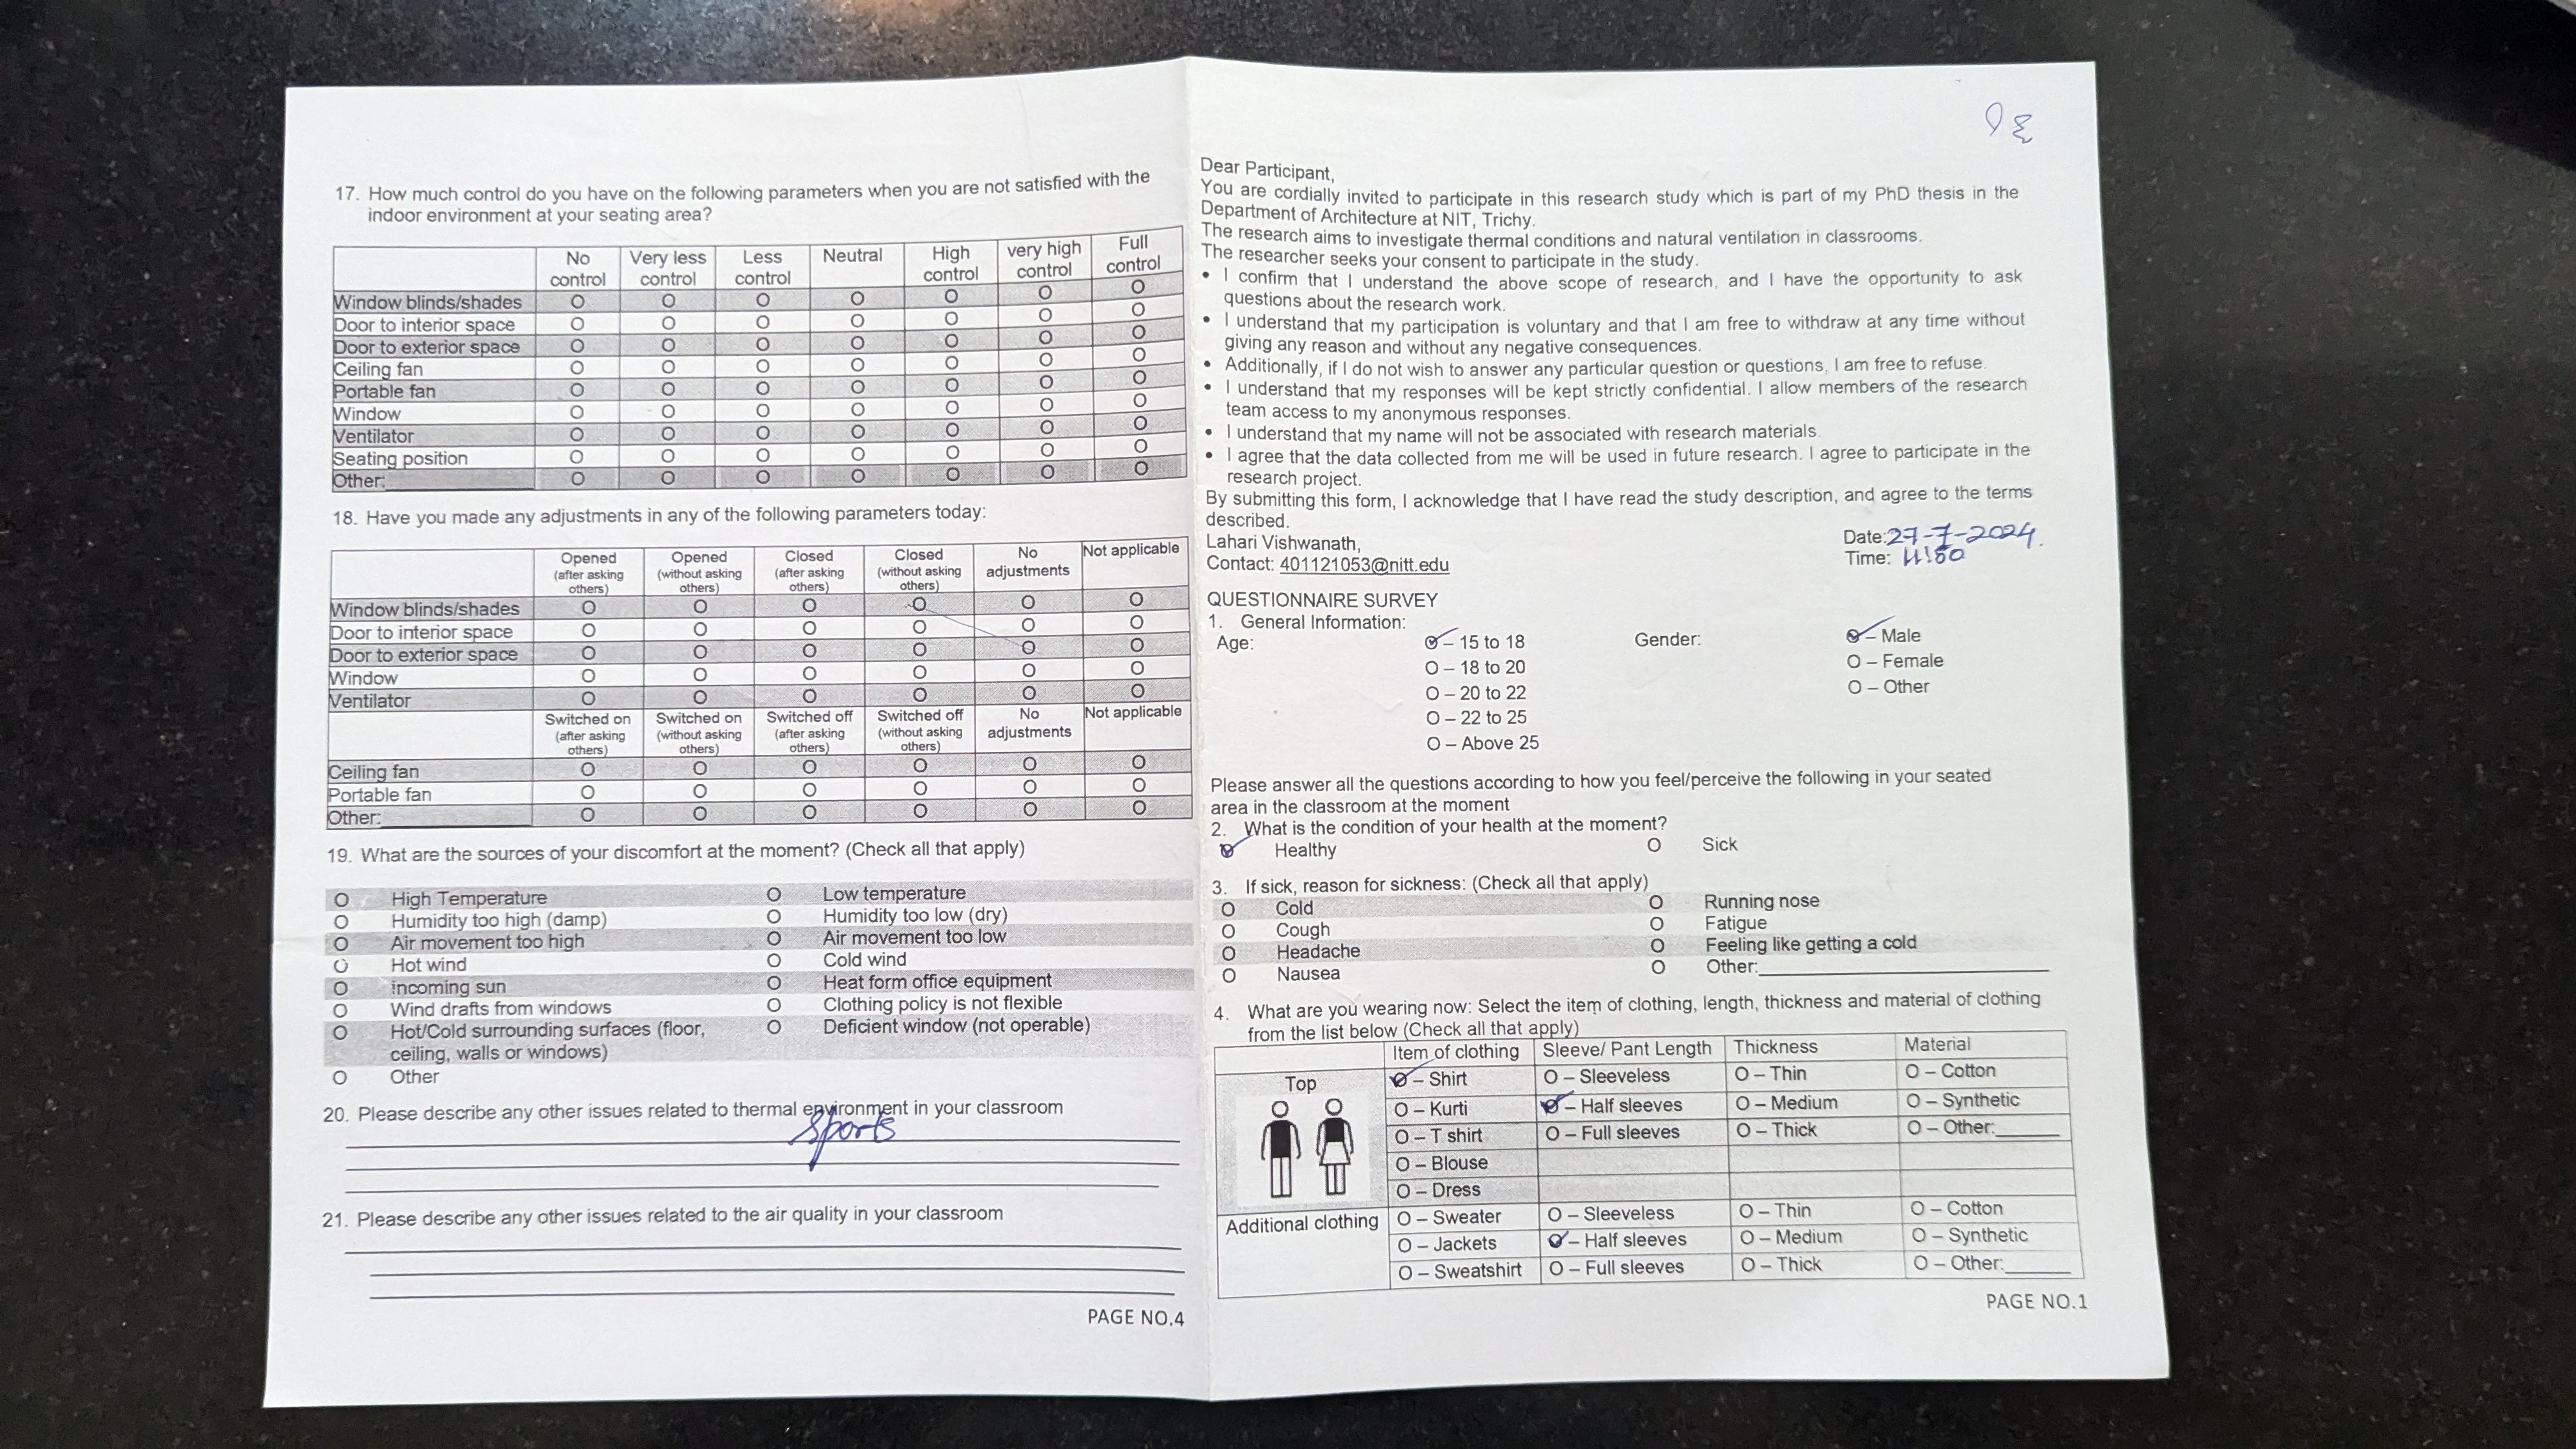 17. How much control do you have on the following parameters when you are not satisfied with the
indoor environment at your seating area?
No control Very less control Less control Neutral High control very high control Full control
Window blinds/shades O O O O O O O
Door to interior space O O O O O O O
Door to exterior space O O O O O O O
Ceiling fan O O O O O O O
Portable fan O O O O O O O
Window O O O O O O O
Ventilator O O O O O O O
Seating position O O O O O O O
Other: O O O O O O O
18. Have you made any adjustments in any of the following parameters today:
Opened (after asking others) Opened (without asking others) Closed (after asking others) Closed (without asking others) No adjustments Not applicable
Window blinds/shades O O O O O O
Door to interior space O O O O O O
Door to exterior space O O O O O O
Window O O O O O O
Ventilator O O O O O O
Switched on (after asking others) Switched on (without asking others) Switched off (after asking others) Switched off (without asking others) No adjustments Not applicable
Ceiling fan O O O O O O
Portable fan O O O O O O
Other: O O O O O O
19. What are the sources of your discomfort at the moment? (Check all that apply)
O High Temperature O Low temperature
O Humidity too high (damp) O Humidity too low (dry)
O Air movement too high O Air movement too low
O Hot wind O Cold wind
O incoming sun O Heat form office equipment
O Wind drafts from windows O Clothing policy is not flexible
O Hot/Cold surrounding surfaces (floor, O Deficient window (not operable)
ceiling, walls or windows)
O Other
20. Please describe any other issues related to thermal environment in your classroom
Sports
21. Please describe any other issues related to the air quality in your classroom
PAGE NO.4
Dear Participant,
You are cordially invited to participate in this research study which is part of my PhD thesis in the
Department of Architecture at NIT, Trichy.
The research aims to investigate thermal conditions and natural ventilation in classrooms.
The researcher seeks your consent to participate in the study.
• I confirm that I understand the above scope of research, and I have the opportunity to ask
questions about the research work.
• I understand that my participation is voluntary and that I am free to withdraw at any time without
giving any reason and without any negative consequences.
• Additionally, if I do not wish to answer any particular question or questions, I am free to refuse.
• I understand that my responses will be kept strictly confidential. I allow members of the research
team access to my anonymous responses.
• I understand that my name will not be associated with research materials.
• I agree that the data collected from me will be used in future research. I agree to participate in the
research project.
By submitting this form, I acknowledge that I have read the study description, and agree to the terms
described.
Date:27-7-2024.
Lahari Vishwanath,
Time:
Contact: 401121053@nitt.edu
QUESTIONNAIRE SURVEY
1. General Information:
Age: O – 15 to 18 Gender: O – Male
O – 18 to 20 O – Female
O – 20 to 22 O – Other
O – 22 to 25
O – Above 25
Please answer all the questions according to how you feel/perceive the following in your seated
area in the classroom at the moment
2. What is the condition of your health at the moment?
O Healthy O Sick
3. If sick, reason for sickness: (Check all that apply)
O Cold O Running nose
O Cough O Fatigue
O Headache O Feeling like getting a cold
O Nausea O Other:
4. What are you wearing now: Select the item of clothing, length, thickness and material of clothing
from the list below (Check all that apply)
Item of clothing Sleeve/ Pant Length Thickness Material
Top O – Shirt O – Sleeveless O – Thin O – Cotton
O – Kurti O – Half sleeves O – Medium O – Synthetic
O – T shirt O – Full sleeves O – Thick O – Other:
O – Blouse
O – Dress
Additional clothing O – Sweater O – Sleeveless O – Thin O – Cotton
O – Jackets O – Half sleeves O – Medium O – Synthetic
O – Sweatshirt O – Full sleeves O – Thick O – Other:
PAGE NO.1